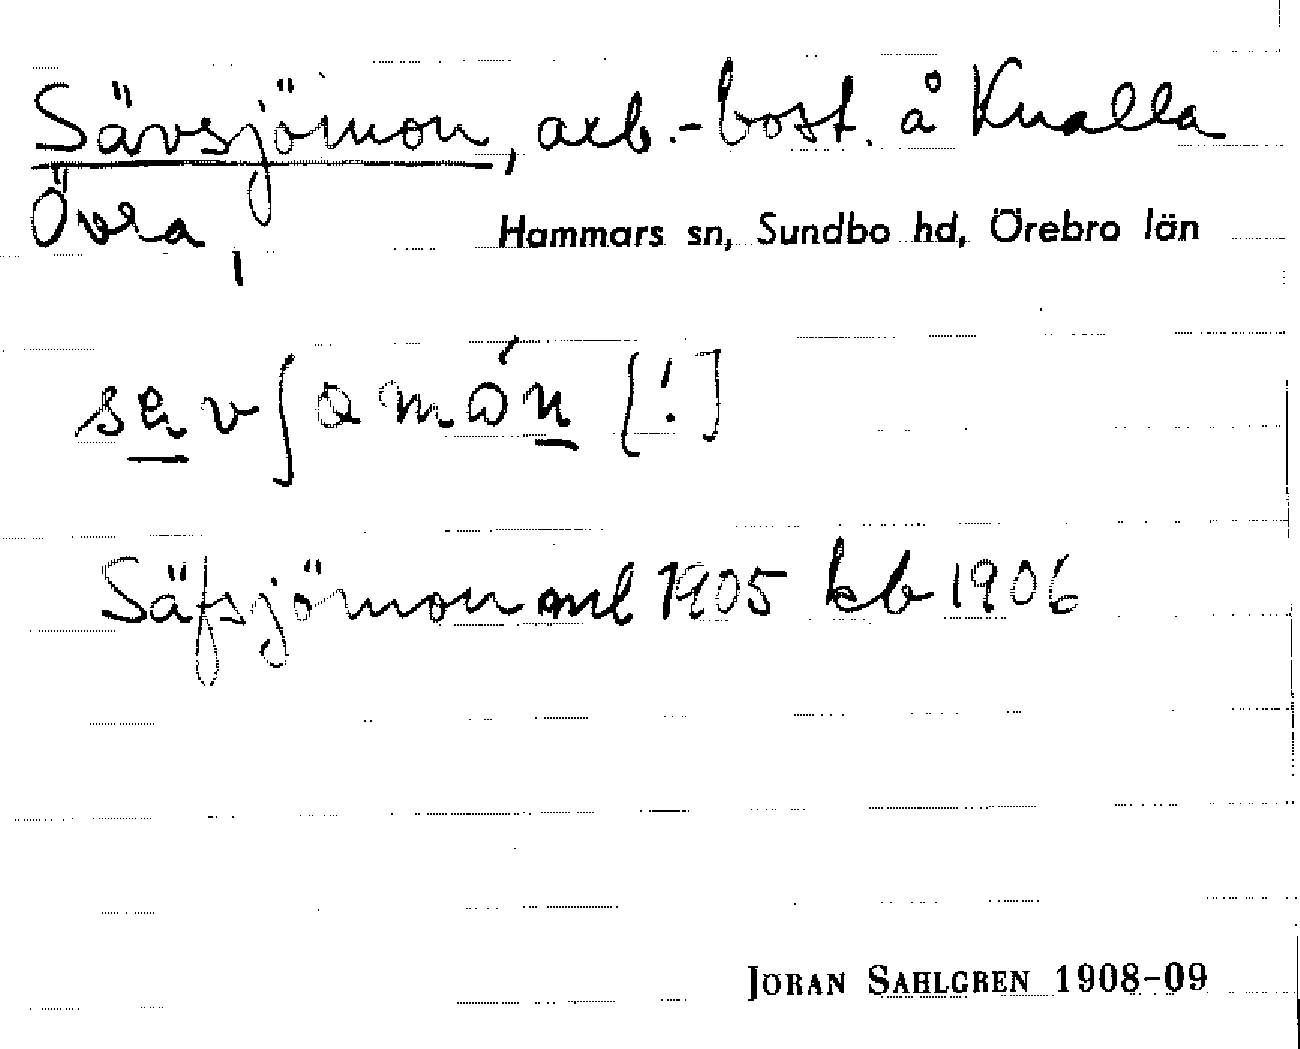 Sävsjömon, arb.-bost. å Knalla
Övra,
Hammars sn, Sundbo hd, Örebro län
[!]
Säfsjömon ml 1905 kb 1906
JÖRAN SAHLGREN 1908-09